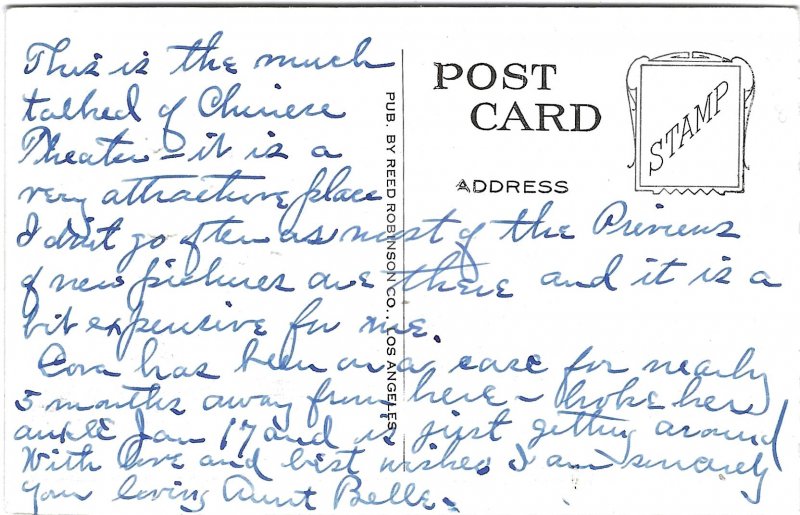 This is the much
talked of Chinese
Theater - it is a
very attractive place
I don't go often as most of the Previews
of new pictures are there and it is a
bit expensive for me.
Cora has been on a case for nearly
5 months away from here - broke her
ankle Jan 17 and is just getting around
With love and best wishes I am sincerely
your loving Aunt Belle.
PUB. BY REED ROBINSON CO., LOS ANGELES
POST
CARD
ADDRESS
STAMP